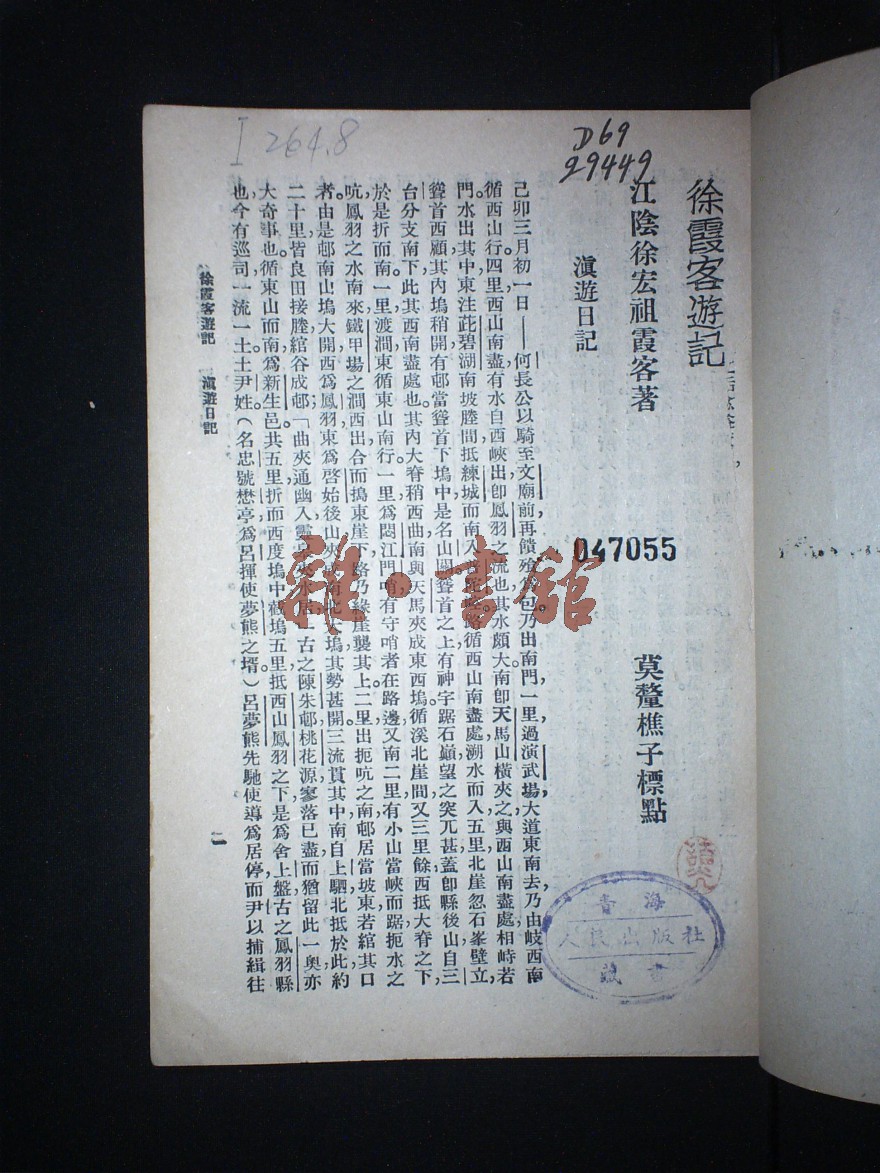 I 264.8
D69
29449
徐霞客遊記
江陰徐宏祖霞客著
莫釐樵子標點
滇遊日記
047055
己卯三月初一日——何長公以騎至文廟前，再饋飱爲包，乃出南門。一里，過演武場，大道東南去，乃由岐西南
循西山行。四里，西山南盡，有水自西峽出，卽鳳羽之流也，其水頗大。南卽天馬山橫夾之，與西山南盡處相峙若
門，水出其中，東注茈碧湖南坡塍間，抵練城而南入普陀崆。路循西山南盡處溯水而入，五里，北崖忽石峯壁立，
聳首西顧，其內塢稍開，有邨當聳首下塢中，是名山關。聳首之上，有神宇踞石巔，望之突兀甚，蓋卽縣後山，自三
台分支南下，此其西南盡處也。其內大脊稍西曲，南與天馬夾成東西塢。循溪北崖間，又三里餘，西抵大脊之下，
於是折而南。一里，渡澗東，循東山南行。一里，爲悶江門哨，有守哨者在路邊。又南二里，有小山當峽而踞，扼水之
吭，鳳羽之水南來，鐵甲場之澗西出，合而搗東崖下。路乃緣崖襲其上，二里，出扼吭之南，邨居當坡東，若綰其口
者。由是邨南山塢大開，西爲鳳羽，東爲啓始後山，夾成南北大塢，其勢甚開。三流貫其中，南自上駟，北抵於此，約
二十里，皆良田接塍，綰谷成邨；「曲夾通幽入，靈臯夾水居」，古之陳朱邨、桃花源，寥落已盡，而猶留此一奧，亦
大奇事也。循東山而南，爲新生邑，共五里，折而西度塢中。截塢五里，抵西山鳳羽之下，是爲舍上盤，古之鳳羽縣
也。今有巡司，一流一土，土尹姓。（名忠，號懋亭，爲呂揮使夢熊之壻）呂夢熊先馳使導爲居停，而尹以捕緝往
徐霞客遊記　滇遊日記
一
雜·書館
青海
人民出版社
藏書